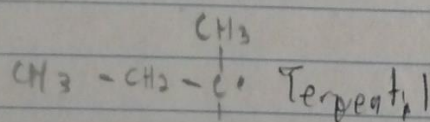 CH3
CH3 - CH2 - C• Terpentyl